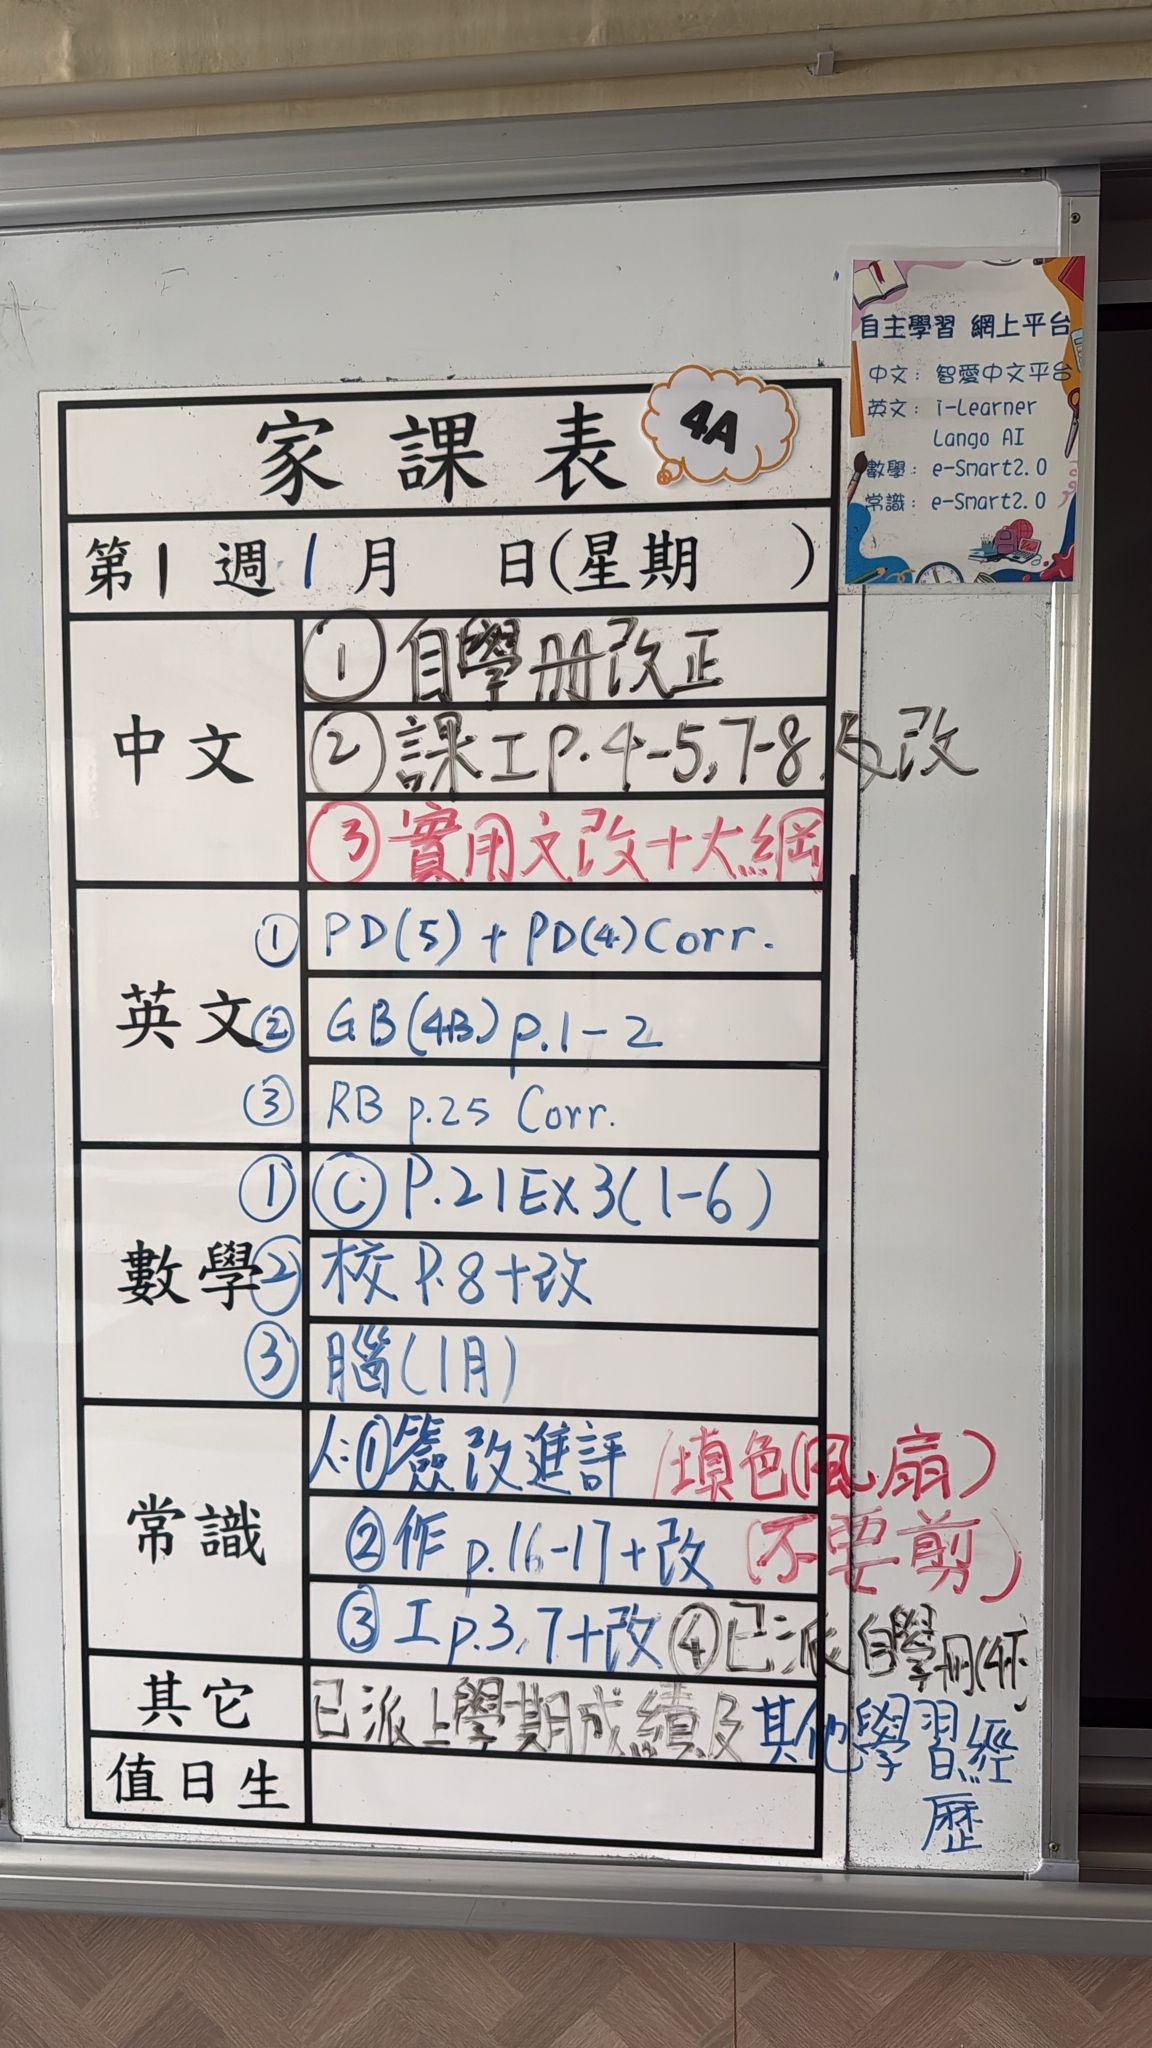 自主學習 網上平台
中文：智愛中文平台
英文：i-Learner
Lango AI
數學：e-Smart2.0
常識：e-Smart2.0
家課表
4A
第1週1月 日(星期 )
中文
①自學冊改正
②課工p.4-5,7-8及改
③實用文改+大綱
英文
①PD(5)+PD(4)Corr.
②GB(4B)p.1-2
③RB p.25 Corr.
數學
①Ⓒ P.21Ex3(1-6)
②校P.8+改
③腦(1月)
常識
人:①簽改進評 /填色(風扇)
②作p.16-17+改 (不要剪)
③工p.3,7+改④已派自學冊
其它
已派上學期成績及其他學習經歷
值日生